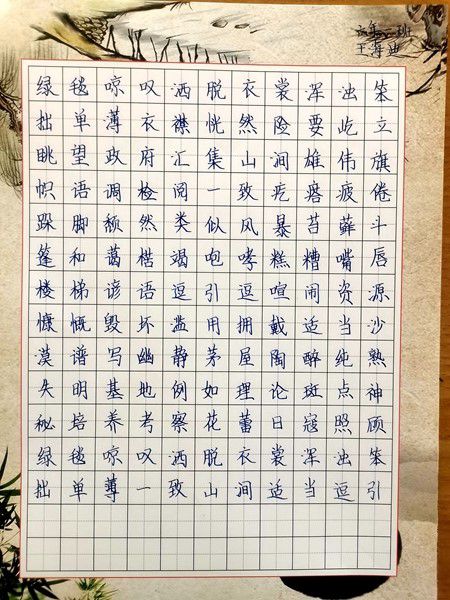 绿毯惊叹洒脱衣裳浑浊笨
拙单薄衣襟恍然险要屹立
眺望政府汇集山涧雄伟旗
帜语调检阅一致疙瘩疲倦
跺脚颓然类似风暴苔藓斗
篷和蔼枯竭咆哮糕糟嘴唇
楼梯谚语逗引逗喧闹资源
慷慨毁坏滥用拥戴适当沙
漠谱写幽静茅屋陶醉纯熟
失明基地例如理论斑点神
秘培养考察花蕾日寇照顾
绿毯惊叹洒脱衣裳浑浊笨
拙单薄一致山涧适当逗引